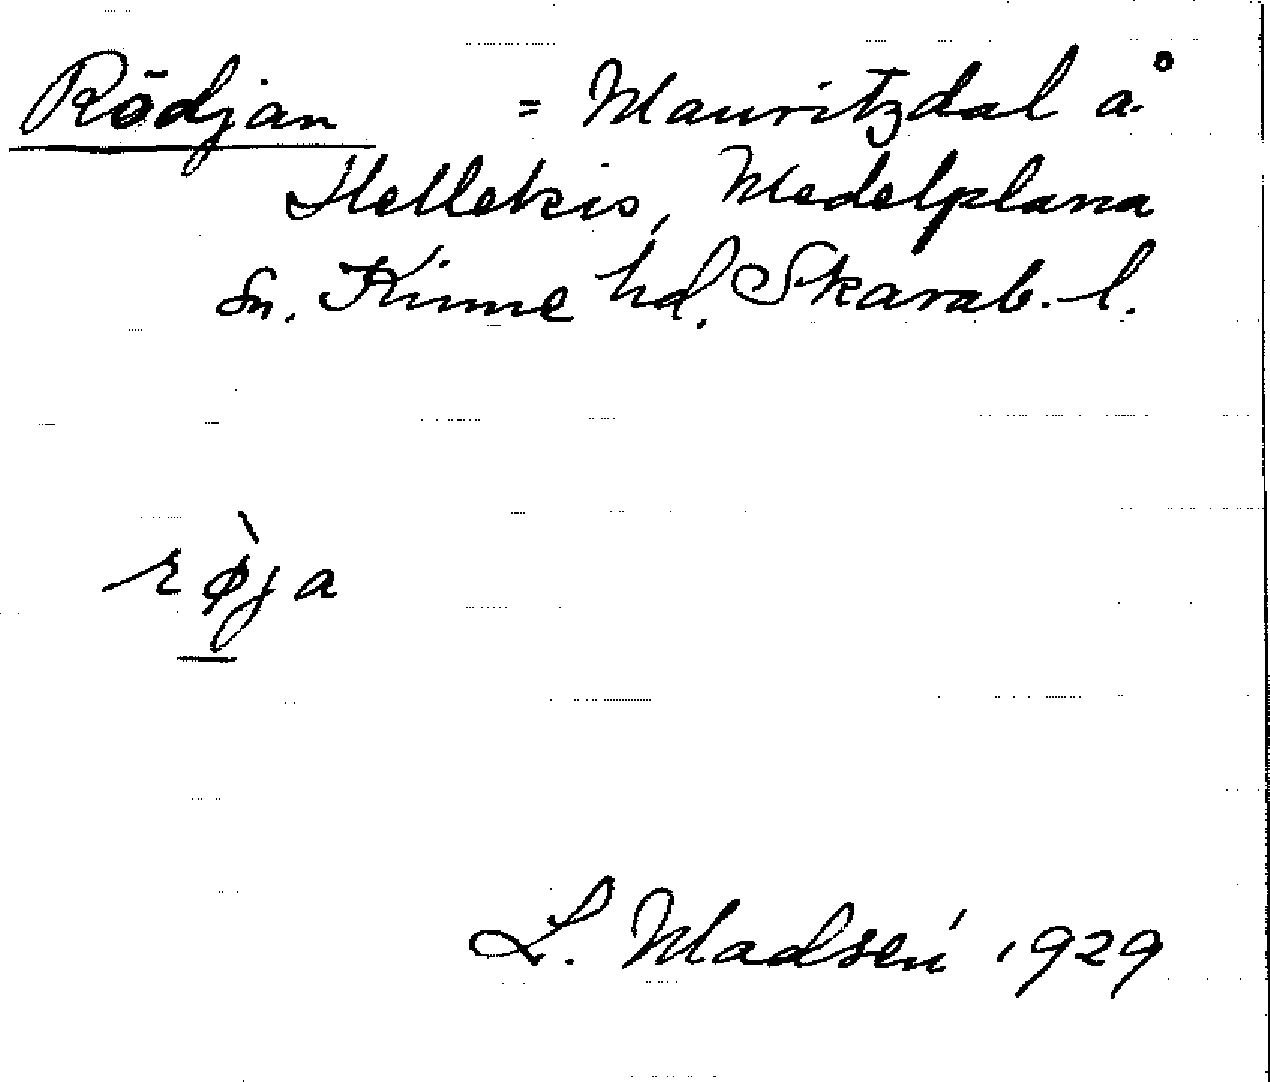 Rödjan = Mauritzdal å
Hellekis, Medelplana
sn. Kinne hd, Skarab. l.
rø̀ja
L. Madsén 1929